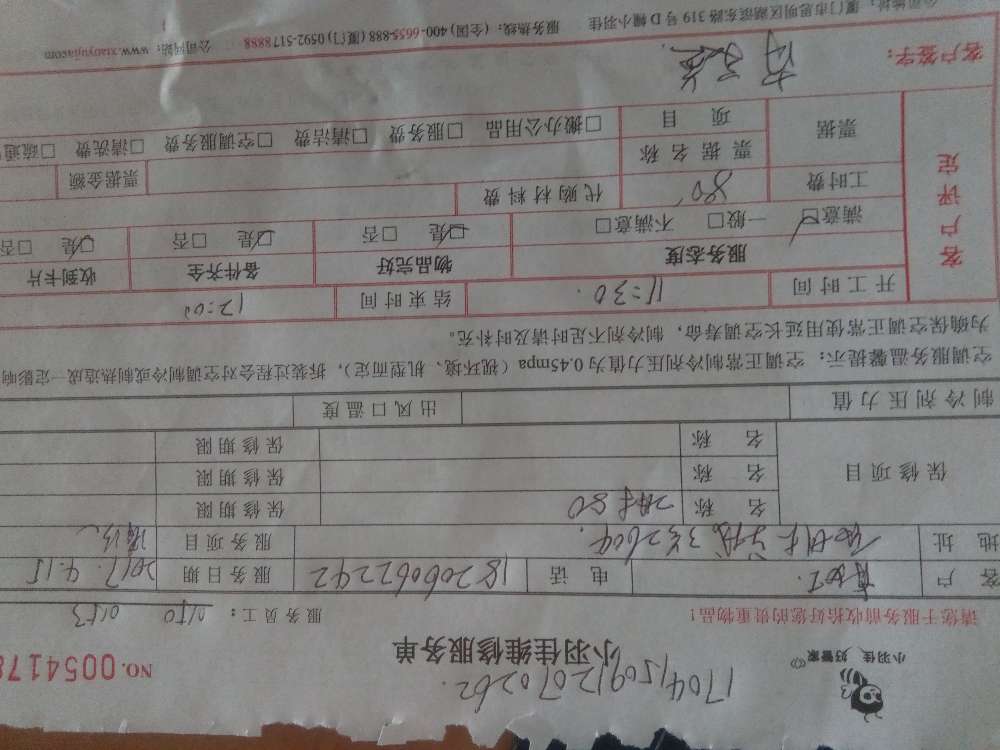 1704150912070262
小羽佳 好管家
小羽佳维修服务单
NO.0054178
请您于服务前收拾好您的贵重物品!
服务员工: 0150 0153
客户 电话 18206062242 服务日期 2017.4.15
地址 服务项目 清洗
保修项目 名称 保修期限
名称 保修期限
名称 保修期限
制冷剂压力值 出风口温度
空调服务温馨提示: 空调正常制冷剂压力值为0.45mpa(视环境、机型而定),拆装过程会对空调制冷或制热造成一定影响
为确保空调正常使用延长空调寿命,制冷剂不足时请及时补充。
客户评定
开工时间 11:30. 结束时间 12:00
服务态度 物品完好 备件齐全 收到卡片
满意□ 一般□ 不满意□ □是 □否 □是 □否 □是 □否
工时费 80 代购材料费
票据 票据名称 票据金额
项目 □搬办公用品 □服务费 □清洁费 □空调服务费 □清洗费 □疏通
客户签字:
公司地址: 厦门市思明区湖滨东路319号D幢小羽佳 服务热线: (全国) 400-6655-888 (厦门) 0592-5178888 公司网站: www.xiaoyujia.com